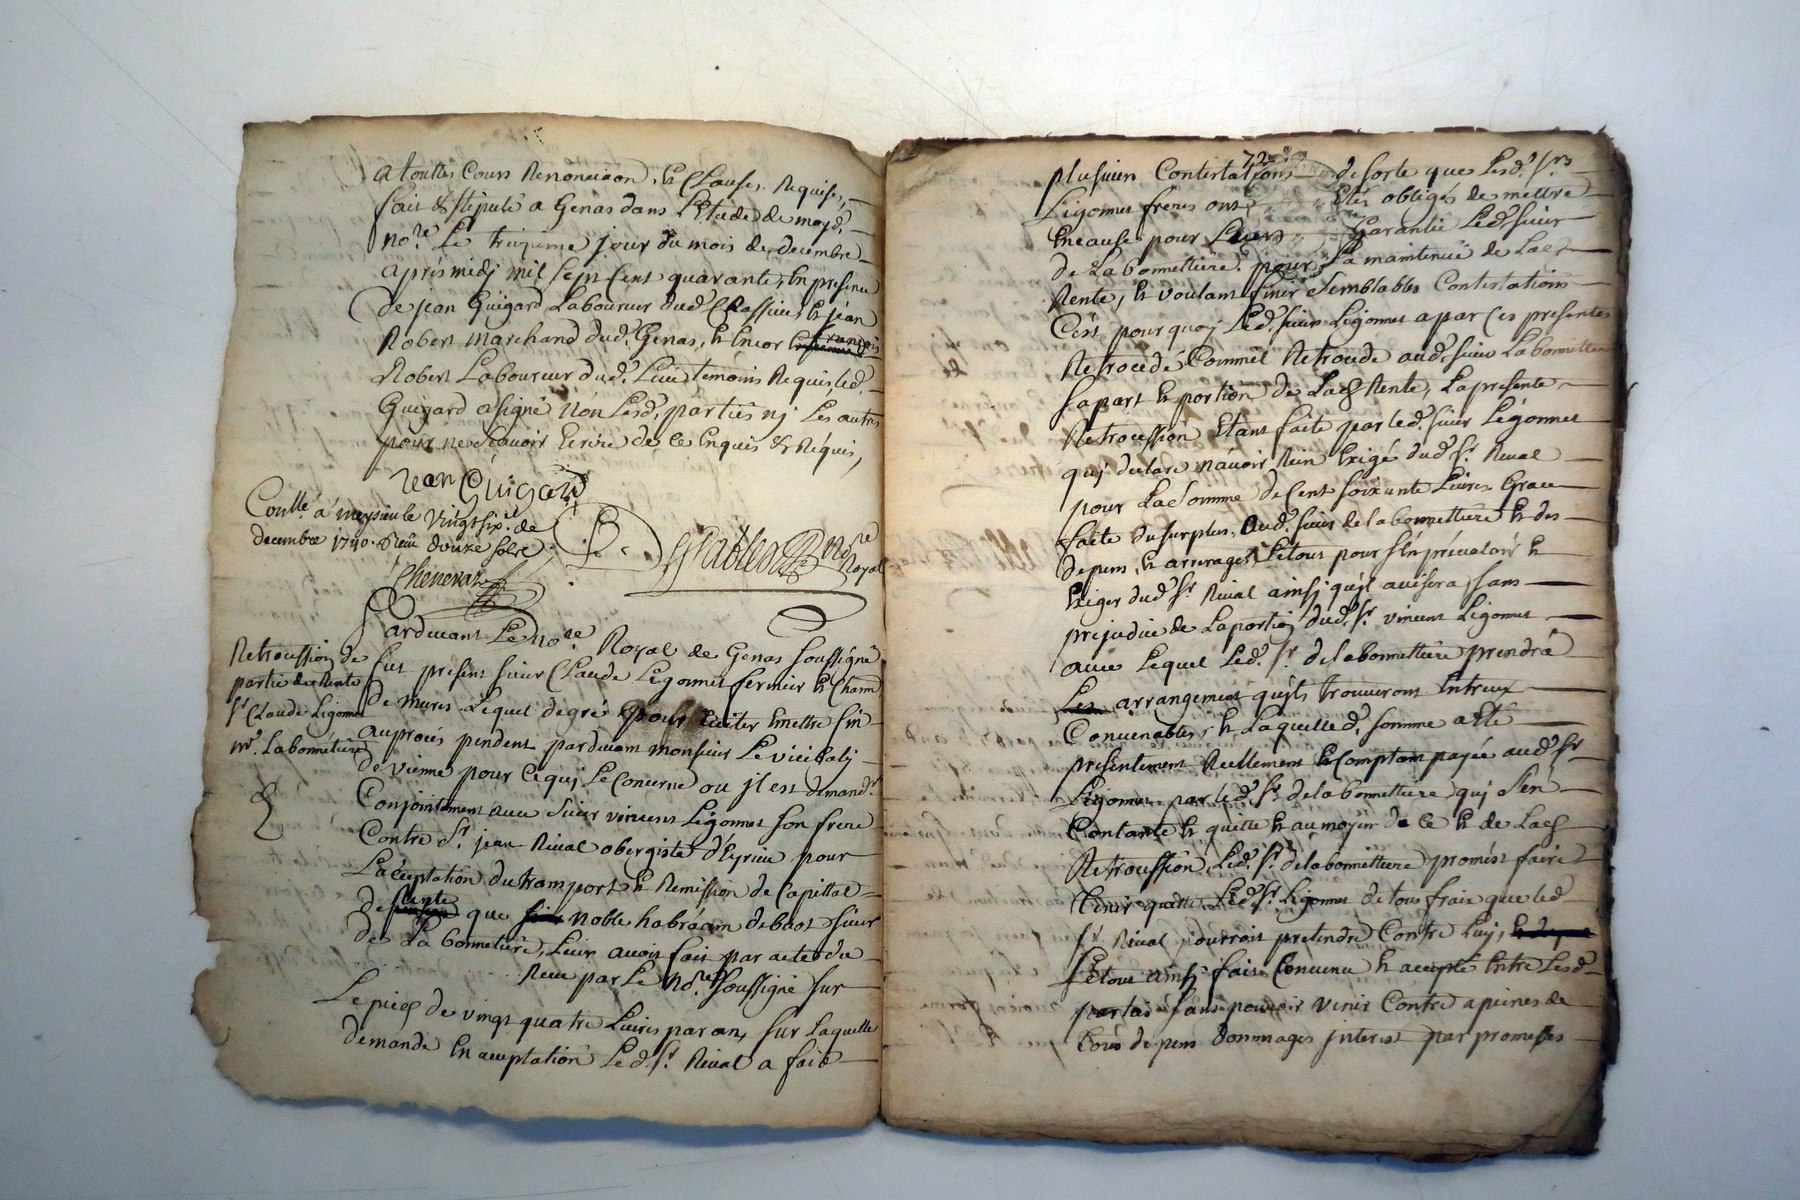 a touttes Cours Renonciaon, & Clauses Requises,
fait & stipulé a Genas dans l'Etude de moyd.
no.re Le trizieme jour du mois de decembre
aprés midj mil sept Cent quarante, En presence
De jean Guigard Laboureur dud. Chassieu, & jean
Robert marchand dud. Genas, & Encor françois
Robert Laboureur dud. Lieu temoins Requis led.
Guigard a signé non Lesd. parties nj Les autres
pour ne scavoir Ecrire de ce Enquis & Réquis,
Jean Guigard
Coullé a meysieu le vingt six.e de
decembre 1740. Reçu douze sols
no.re Royal
Chenevas
Pardevant Le no.re Royal de Genas soussigné
Retrocession de
partie de Rente
s.r Claude Ligonnet
m.r Labonnétiere
fut present sieur Claude Ligonnet fermier
De mures Lequel de gré pour Eviter & mettre fin
au procés pendent pardevam monsieur Le vicibalj
de vienne pour Ce quj Le Concerne ou jl est demand.r
Conjointement avec sieur vincent Ligonnet son frere
Contre s.r jean Rival obergiste d'Eyrieu pour
L'acceptation du transport & Remission de Capittal
de Rente que noble habraam debaot sieur
de La bonnetiere, Leur avoit fait par acte du
Receu par Le No.re soussigné sur
Le pied de vingt quatre Livres par an, sur Laquelle
demande En acceptation Led. s.r Rival a fait
72
plusieurs Contestations de sorte que Lesd. s.rs
Ligonnet freres ont Etés obligés de mettre
En cause pour Leurs Garantie Led. sieur
de La bonnettiere. pour La maintenuë de Lad.
Rente, & voulant finir semblables Contestations
C'est pourquoy Led. sieur Ligonnet a par Ces presentes
Retrocedé Comme il Retrocede aud. sieur La bonnettiere
sa part & portion de Lad. Rente, La presente
Retrocession Etant faite par led. sieur Ligonnet
quj declare n'avoir Rien Exigé dud. s.r Rival
pour La somme de Cent soixante Livres Grace
faite du surplus, Aud. sieur de la bonnettiere & des
depens, & arrerages Le tout pour s'En prévaloir &
Exiger dud. s.r Rival ainsj qu'jl avisera, sans
prejudice de La portion dud. s.r vincent Ligonnet
avec Lequel Led. s.r de la bonnettiere prendrá
Les arrangement qu'jls trouveront Entreux
Convenables, & Laquelle d. somme a Eté
presentement Réellement & Comptam payée aud. s.r
Ligonnet par led. s.r de la bonnettiere quj s'En
Contante & quitte & au moyen de ce & de Lad.
Retrocession, Led. s.r de la bonnettiere promést faire
tenir quitte Led. s.r Ligonnet de tous frais que led.
s.r Rival pourroit pretendre Contre Luj,
Le tout ainsj fait Convenu & accepté Entre Lesd.
parties sans pouvoir venir Contre a peines de
tous depens dommages jnterest par promesses